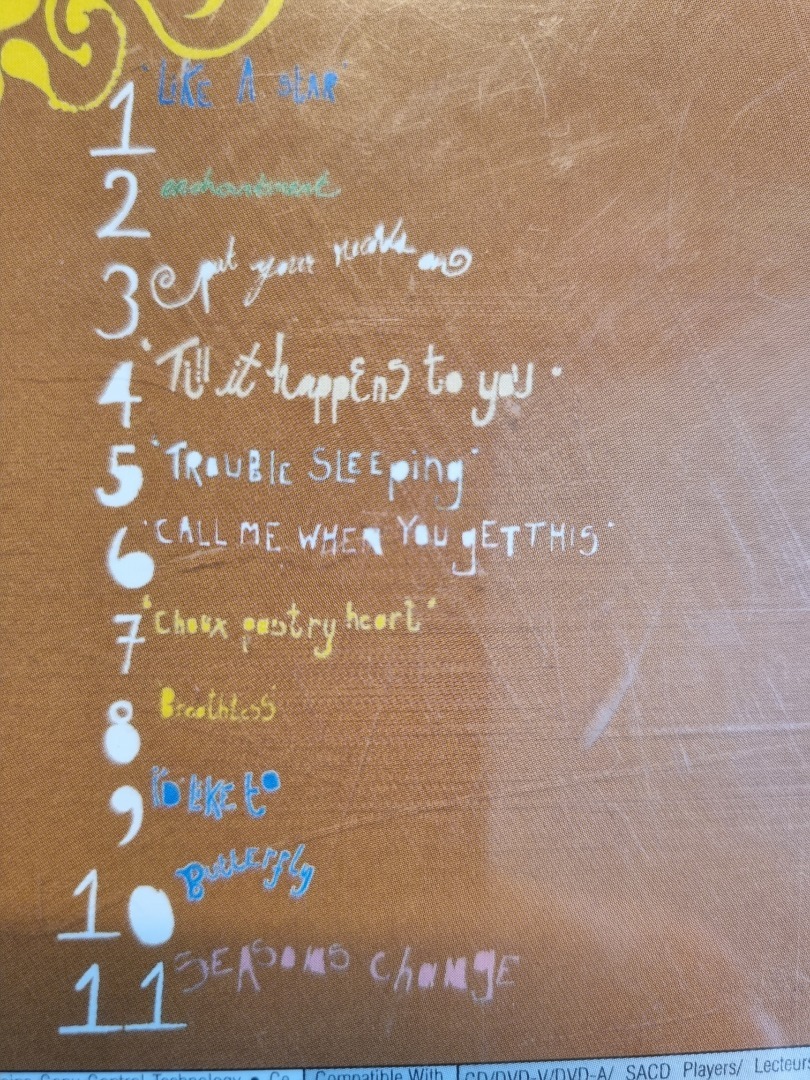 1 'LIKE A STAR'
2 enchantment
3 put your records on
4 'Till it happEnS to you'
5 'TRoUBlE SLEEping'
6 'CALL ME WHEN YOU gETTHIS'
7 'Choux pastry heart'
8 BreathlEss
9 I'D LIKE to
10 ButtErfly
11 SEASoNS ChANgE
Copy Control Technology • Co
Compatible With
CD/DVD-V/DVD-A/ SACD Players/ Lecteurs